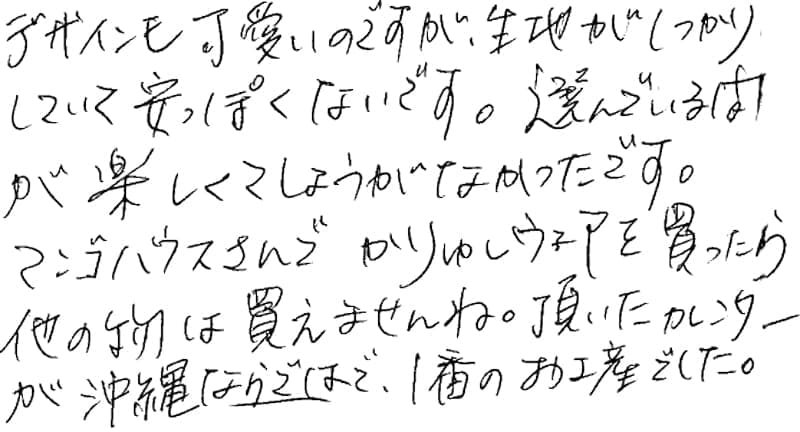 デザインも可愛いのですが、生地がしっかり
していて安っぽくないです。選んでいる間
が楽しくてしょうがなかったです。
マンゴハウスさんでかりゆしウェアを買ったら
他の物は買えませんね。頂いたカレンダー
が沖縄ならではで、1番のお土産でした。